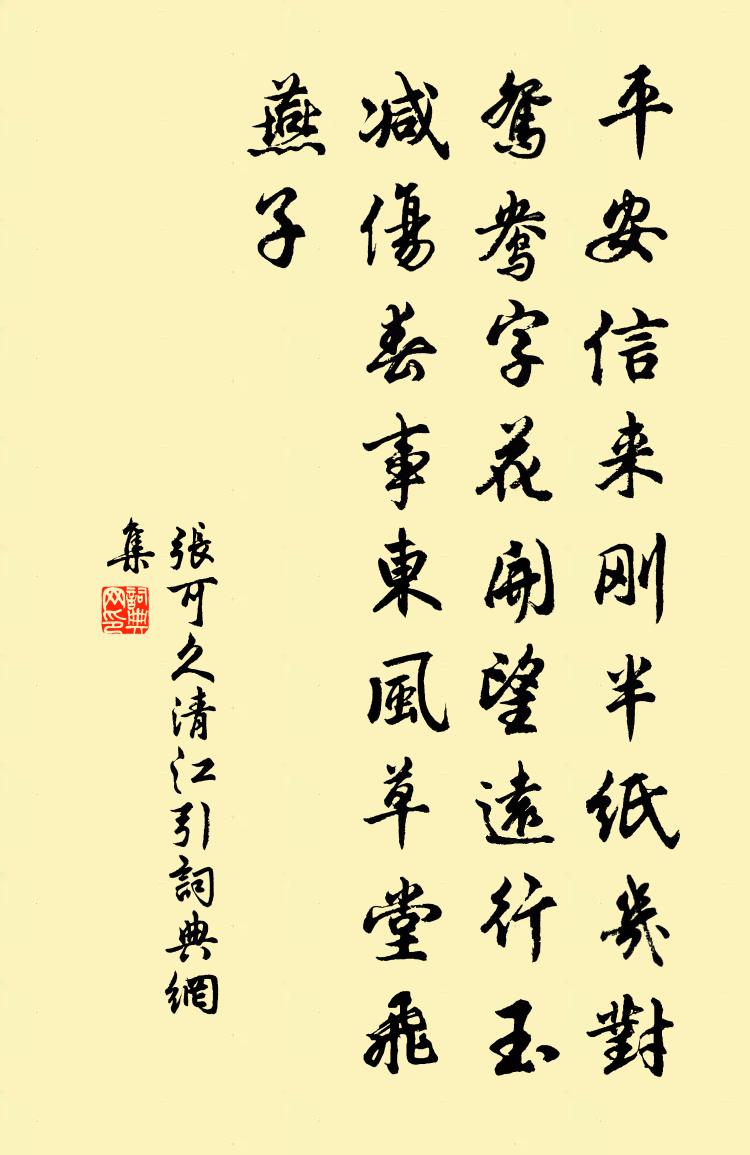 平安信来刚半紙幾對
鴛鴦字花開望遠行玉
减傷春事東風草堂飛
燕子
張可久清江引詞典網
集
詞典
网印